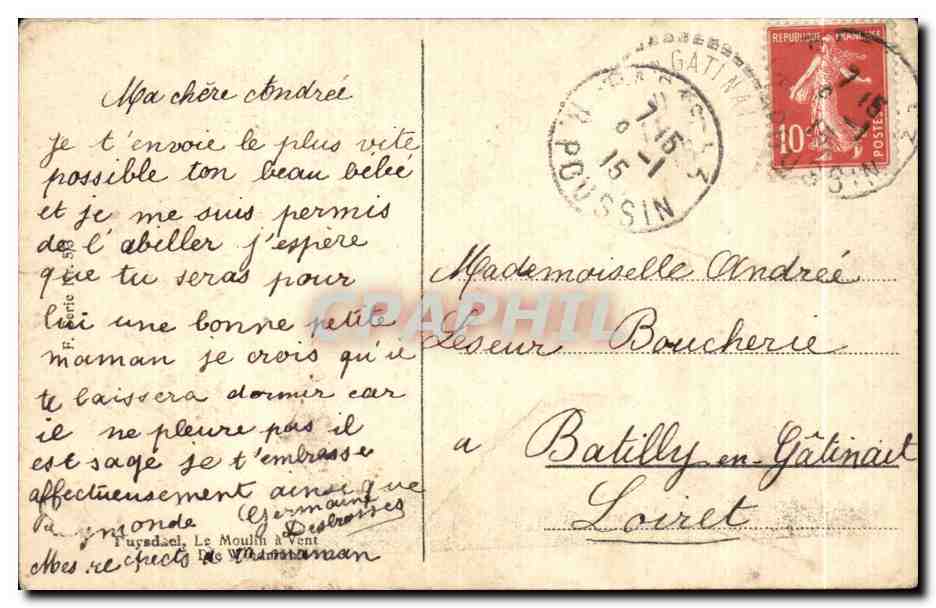 Ma chère Andrée
Je t'envoie le plus vite
possible ton beau bébée
et je me suis permis
de l'abiller j'espère
que tu seras pour
lui une bonne petite
maman je crois qu'il
te laissera dormir car
il ne pleure pas il
est sage je t'embrasse
affectueusement ainsi que
Germaine
Mes respects à ta maman
Ruysdael, Le Moulin à Vent
F. Serie
REPUBLIQUE FRANÇAISE
10
POSTES
R. POUSSIN
7 15
15 -1
15
GATINAI
Mademoiselle Andrée
Leseur Boucherie
a Batilly-en-Gâtinait
Loiret
CPARAPHIL